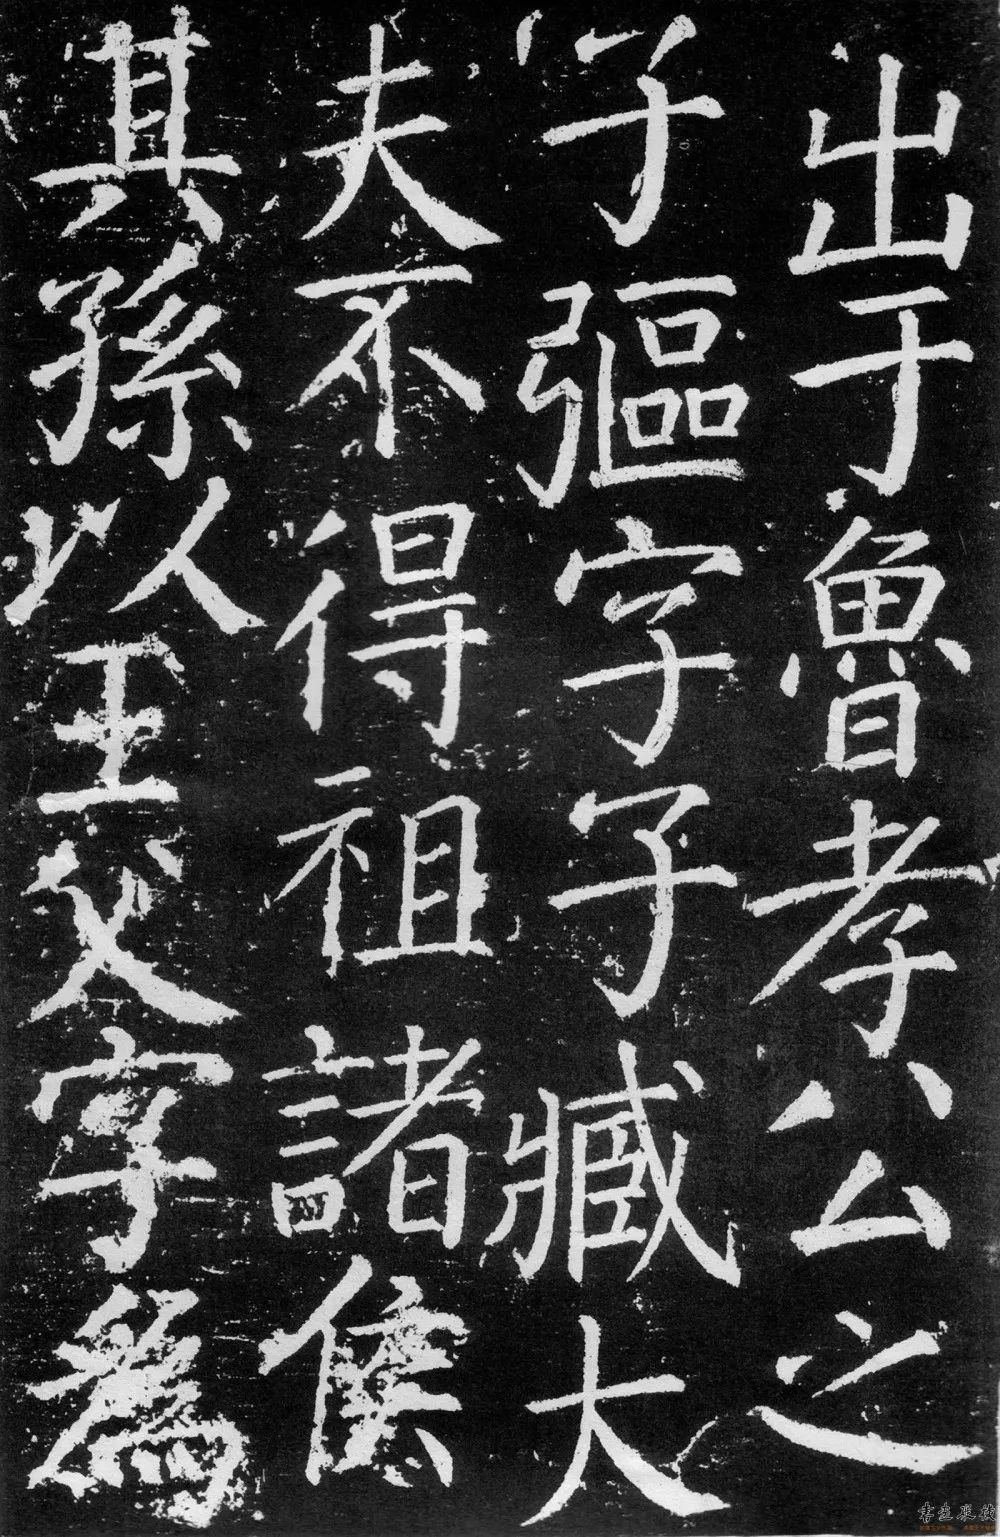 出于魯孝公之
子彄字子臧大
夫不得祖諸侯
其孫以王父字爲